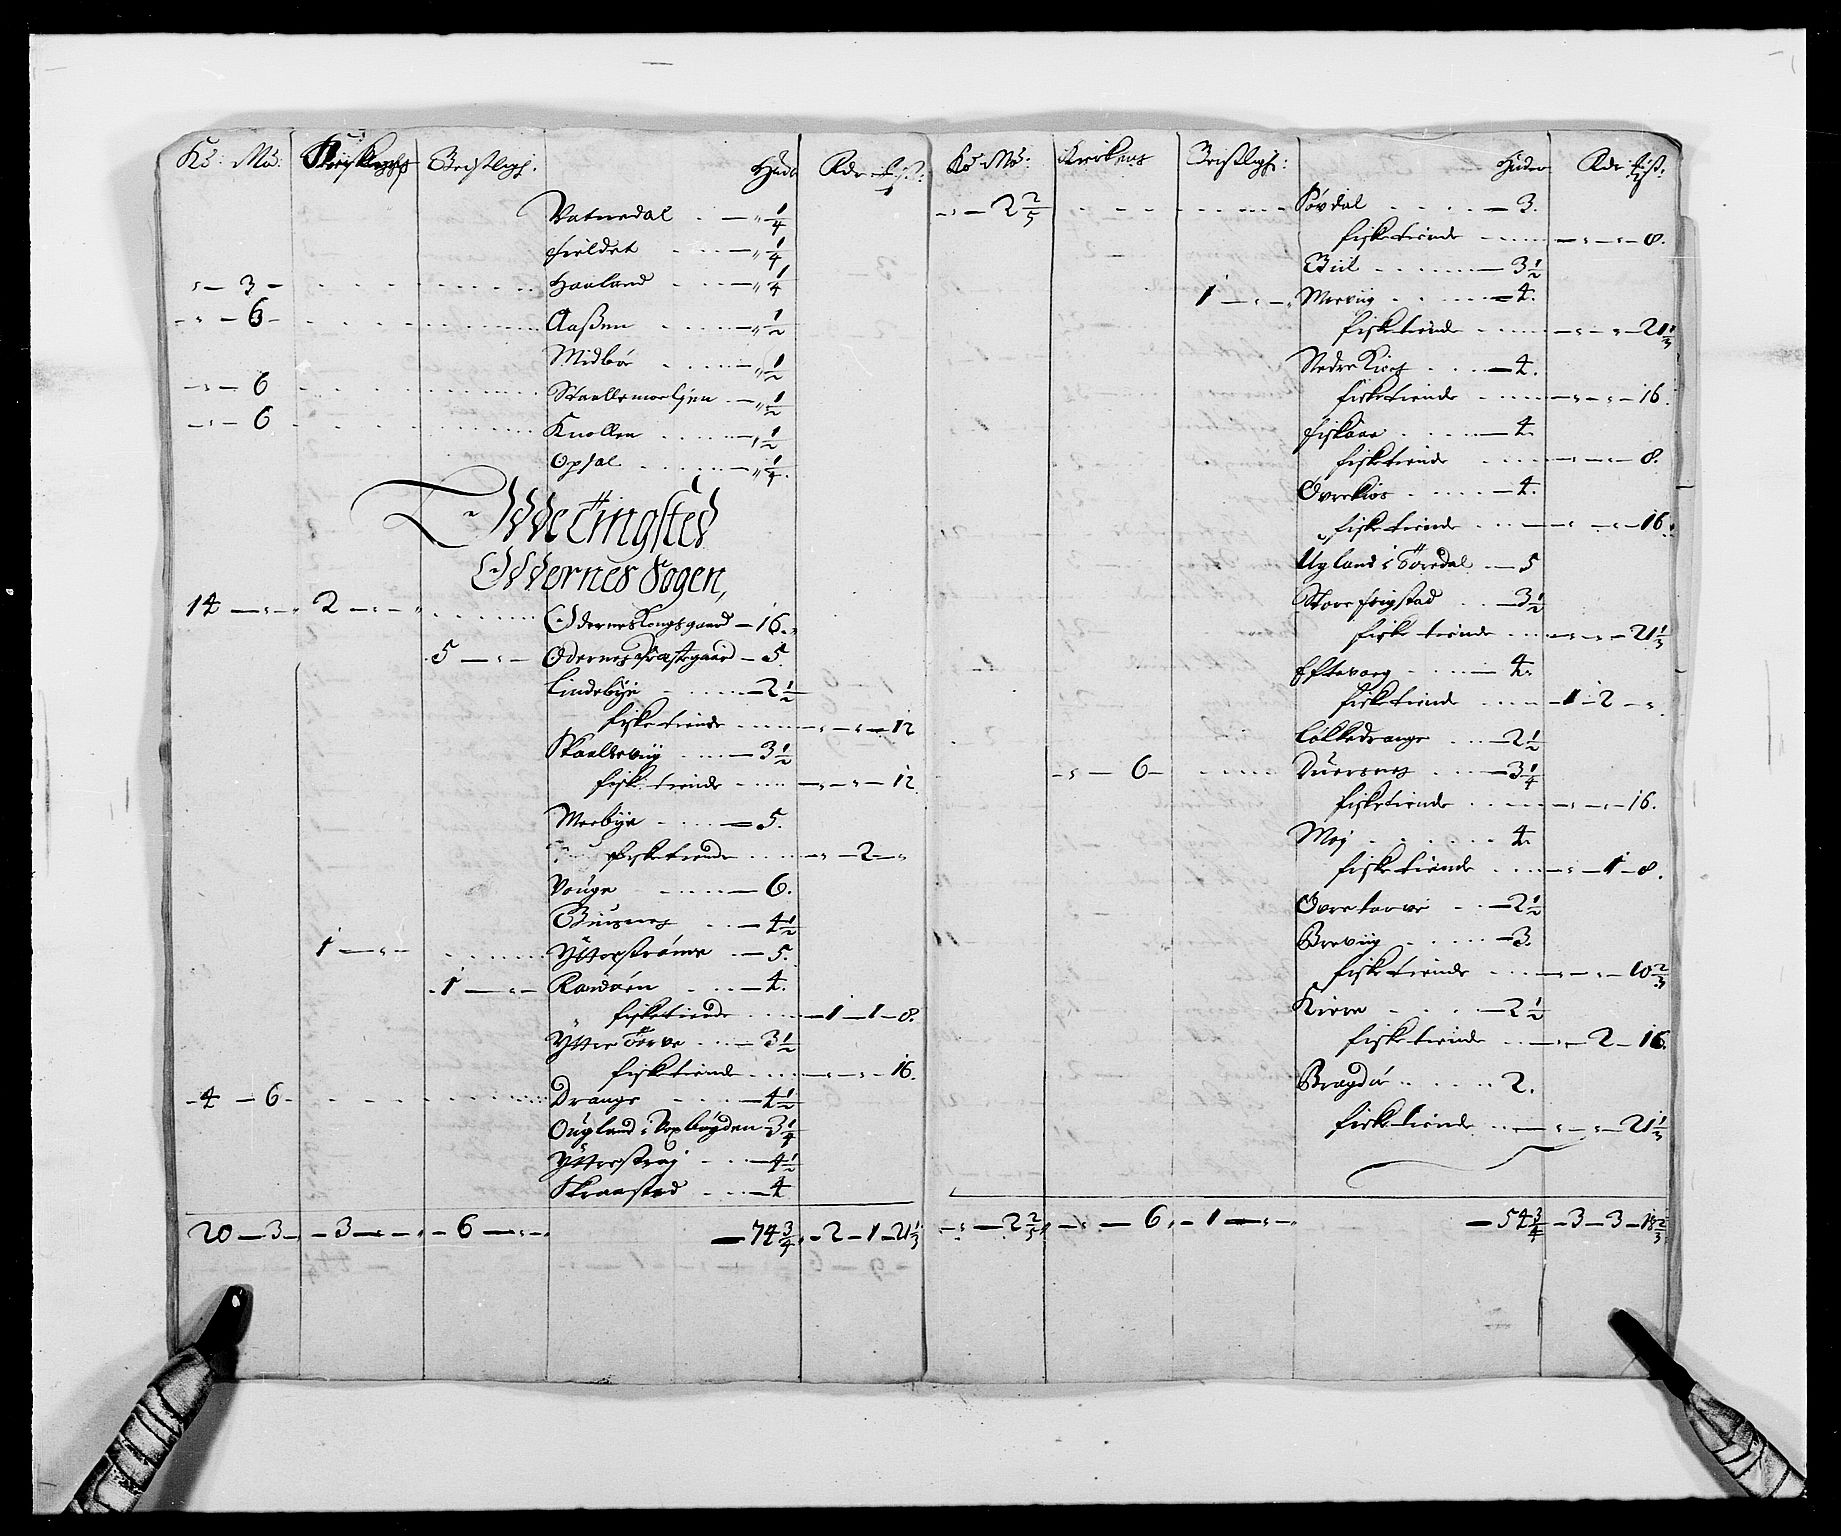 Kö: Mö: Geistligh: Hude Rdr
Vatnedal . . — " 1/4
fieldet . . . . — " 1/4
" — 3 — . . . Haaland . . . — " 1/4
— " — 6 — . . . Aaßen . . . . — " 1/2
Midböe . . . . — " 1/2
— " — 6 . . . Staallemoetjen . — " 1/2
— " — 6 . . . Knollen . . . . — " 1/2
Opsal . . . . — " 1/4.
Odde Tingsted
Oddernes Sogen,
14 — " — " 2 — " — " . . . Odernes Kongsgaard — 16. "
5 — " — Odernes Præstegaard — 5.
Lindebye . . . . — 2 1/2
fiske tiende . . . . — " — " — 12
Skaallevig . . . . — 3 1/2
fiske tiende . . . . — " — " — 12
Meebye . . . . — 5.
fiske tiende . . . . — " — 2 — "
Vouge . . . . — 6.
. . . — 4 1/2
1 — " — . . . Ytterströmme . . — 5.
. 1 — " — Randöen . . . — 4.
" fisketiende . . . . — 1 — 1 — 8.
Ytter Torve . . . — 3 1/2
fisketiende . . . . — " — " — 16.
— 4 — 6 . . . Drange . . . . — 4 1/2
Ougland i Vogsbögden — 3 1/4
Ytterstraj . . . — 4 1/2
Skraastad . . . — 4
20 — 3 — " — 3 — " — " — 6 — " — " — 74 3/4 — 2 — 1 — 21 1/3
Kö: Mö: Kirkens Geistligh: Huder Rdr
— " — 2 2/5 . . . Sövdal . . . . — 3.
fiske tiende . . . . — " — " — 8.
Biil . . . . — 3 1/2
1 — " — " . . . . — 4.
fiske tiende . . . . — " — " — 21 1/3
Nedre Kios . . . . — 4.
fiske tiende . . . . — " — " — 16
Fiskaae . . . . — 4.
fiske tiende . . . . — " — " — 8.
Övre Kios . . . . — 4.
fiske tiende . . . . — " — " — 16.
Ugland i Töredal . . — 5
Store frigstad . . — 3 1/2
fiske tiende . . . — " — " — 21 1/3
Eftevaag . . . . — 4.
fiske tiende . . . . — 1 — 2 — "
Lölledrange . . . — 2 1/2
— " — 6 — . . . . . . — 3 1/4
fiske tiende . . . . — " — " — 16.
Moj . . . . 4.
fiske tiende . . . — " — 1 — 8.
Övre tarve . . . — 2 1/2
Brevig . . . . — 3.
fiske tiende . . . — " — " — 10 2/3
Kiere . . . . — 2 1/2
fiske tiende . . . — " — 2 — 16.
Bragdö . . . . 2.
fiske tiende . . . — " — " — 21 1/3
— " — 2 2/5 — " — 6 " — 1 — " — " — 54 3/4 — 3 — 3 — 18 2/3